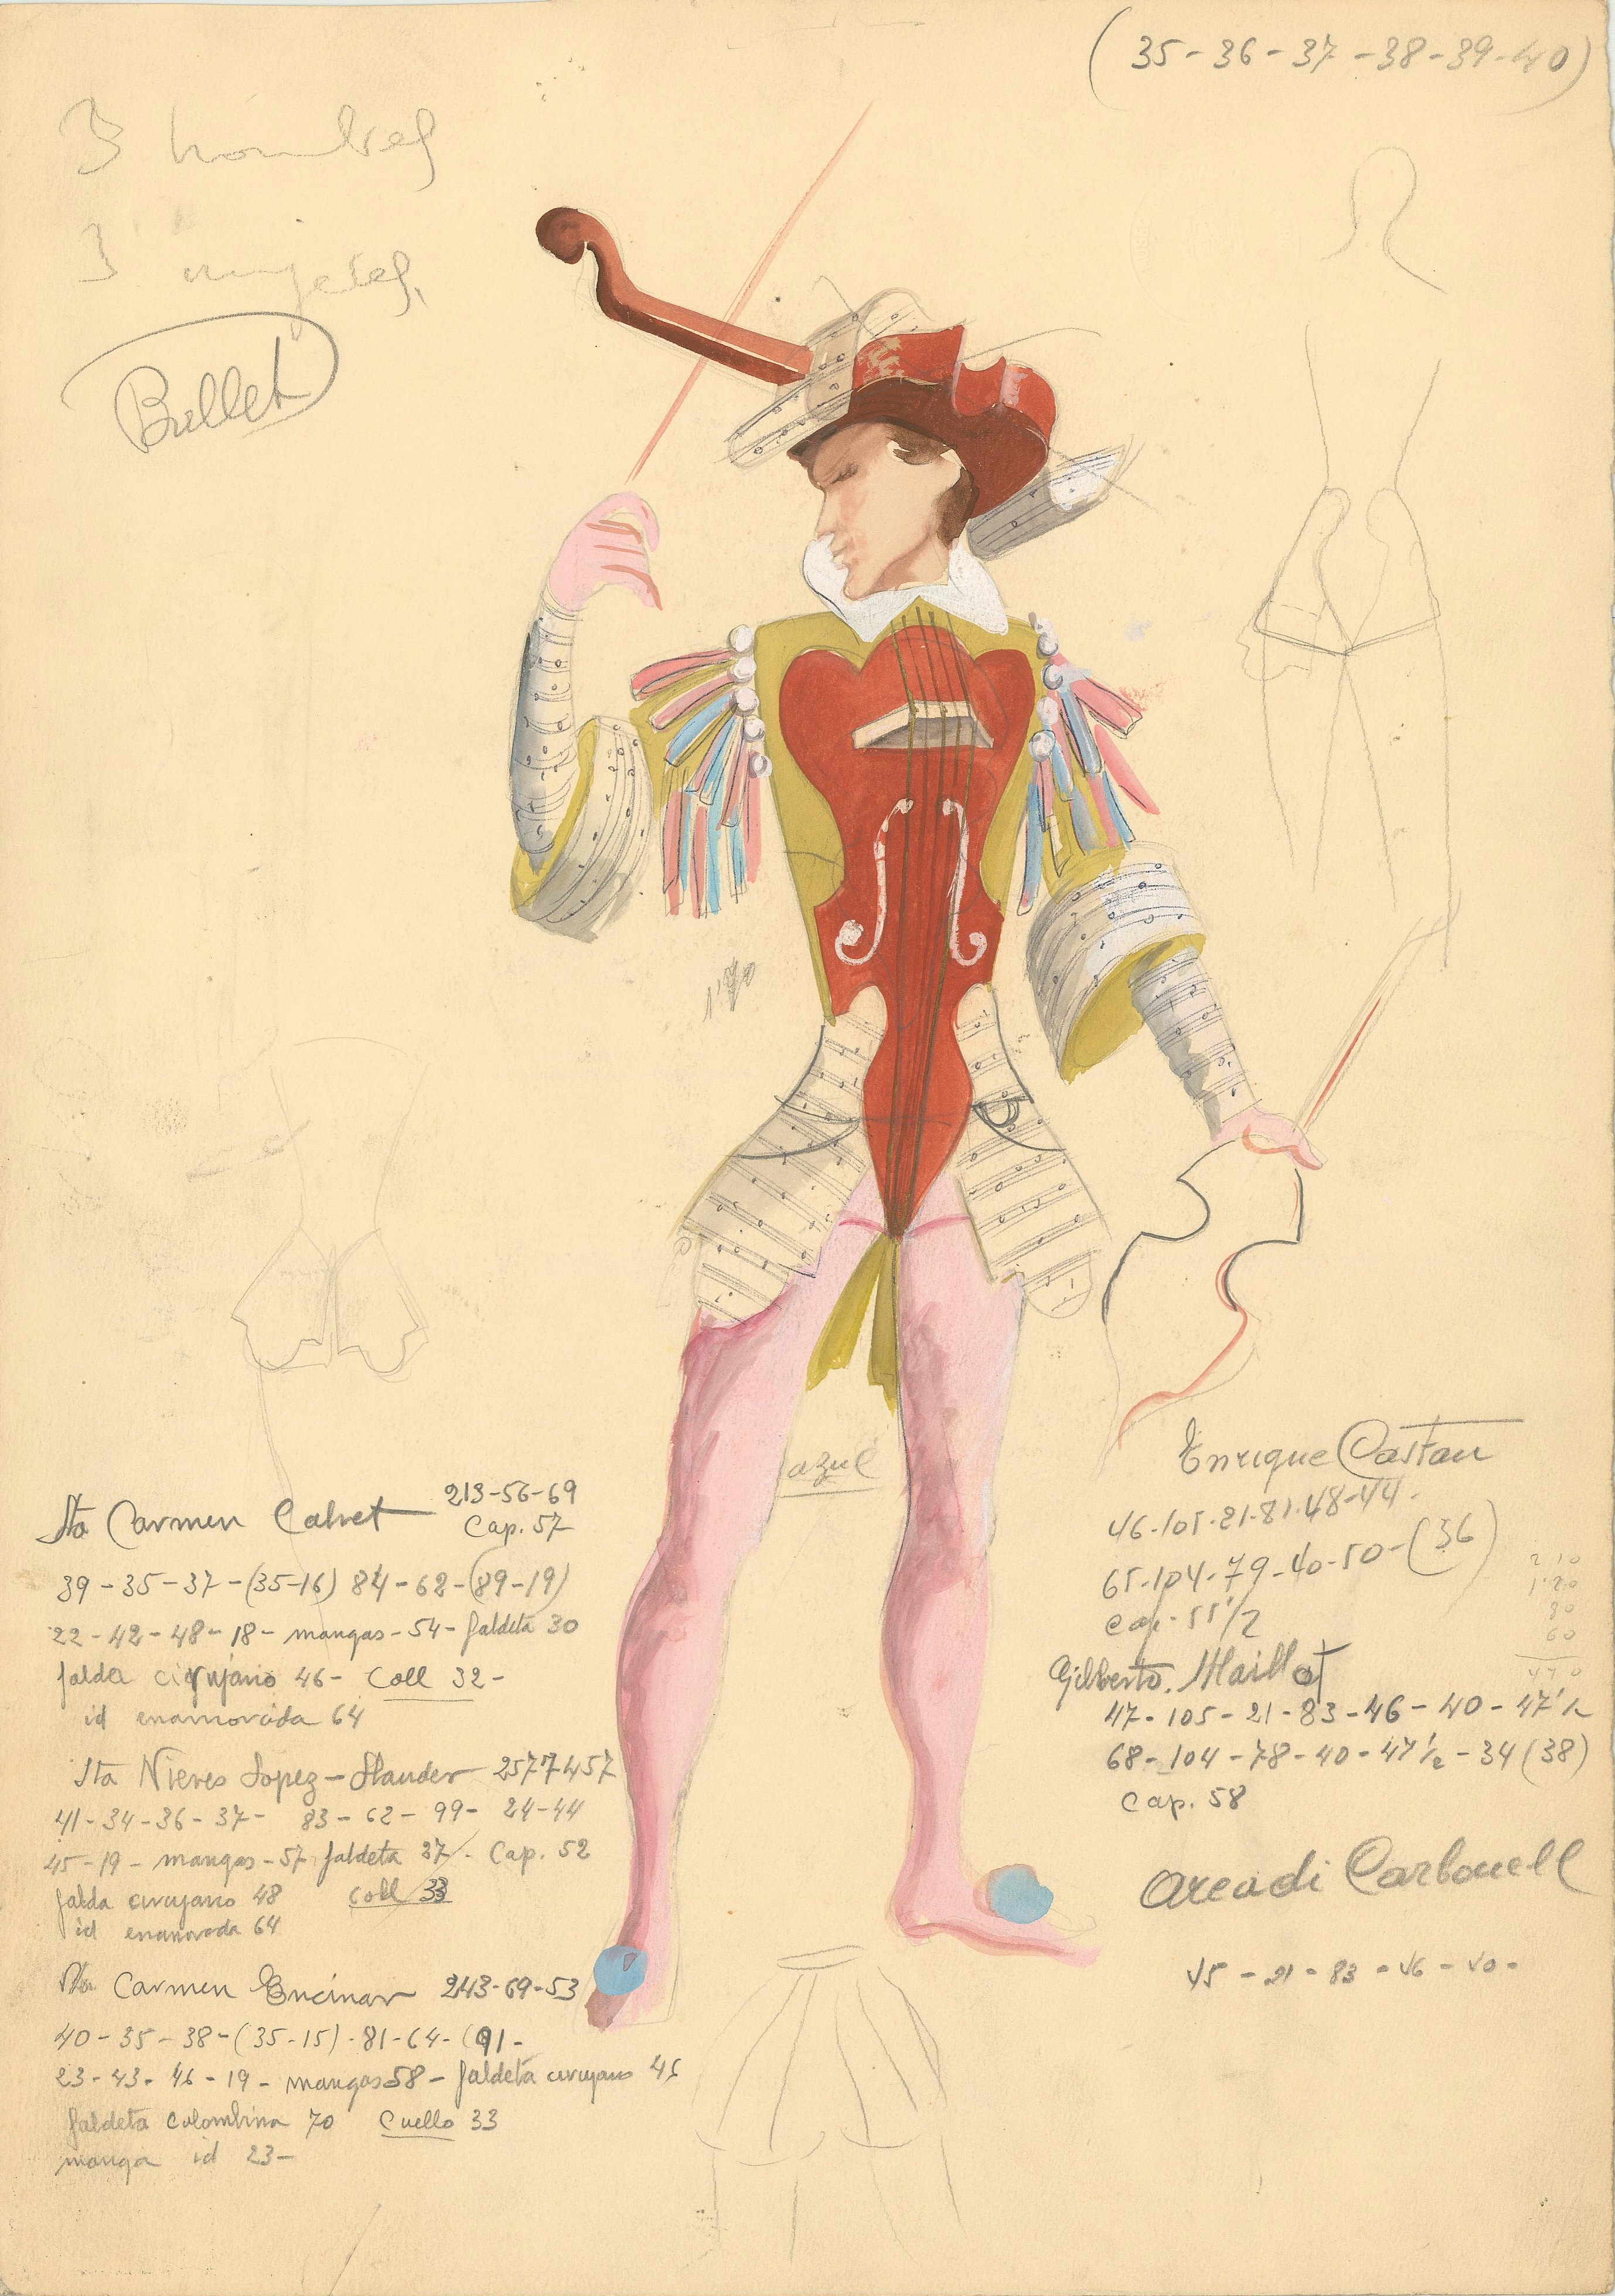 (35-36-37-38-39-40)
3 hombres
3 mujeres,
Ballet
1'70
azul
Sta Carmen Calvet 213-56-69
Cap. 57
39-35-37-(35-16) 84-62-(89-19)
22-42-48-18- mangas-54- faldeta 30
falda cirujano 46- Coll 32-
id enamorada 64
Sta Nieves Lopez- 2577457
41-34-36-37- 83-62-99-24-44
45-19- mangas-57 faldeta 37-. Cap. 52
falda cirujano 48 Coll 33
id enamorada 64
Sta Carmen Encinar 243-69-53
40-35-38-(35-15)-81-64-(91-
23-43-46-19- mangas 58- faldeta cirujano 46
faldeta colombina 70 Cuello 33
manga id 23-
Enrique Castan
46-105-21-81-48-44.
65-104-79-40-50-(36)
Cap. 55 1/2
Gilberto. Maillot
47-105-21-83-46-40-47 1/2
68-104-78-40-47 1/2-34(38)
Cap. 58
Arcadi Carbonell
45-21-83-46-40-
210
120
80
60
470